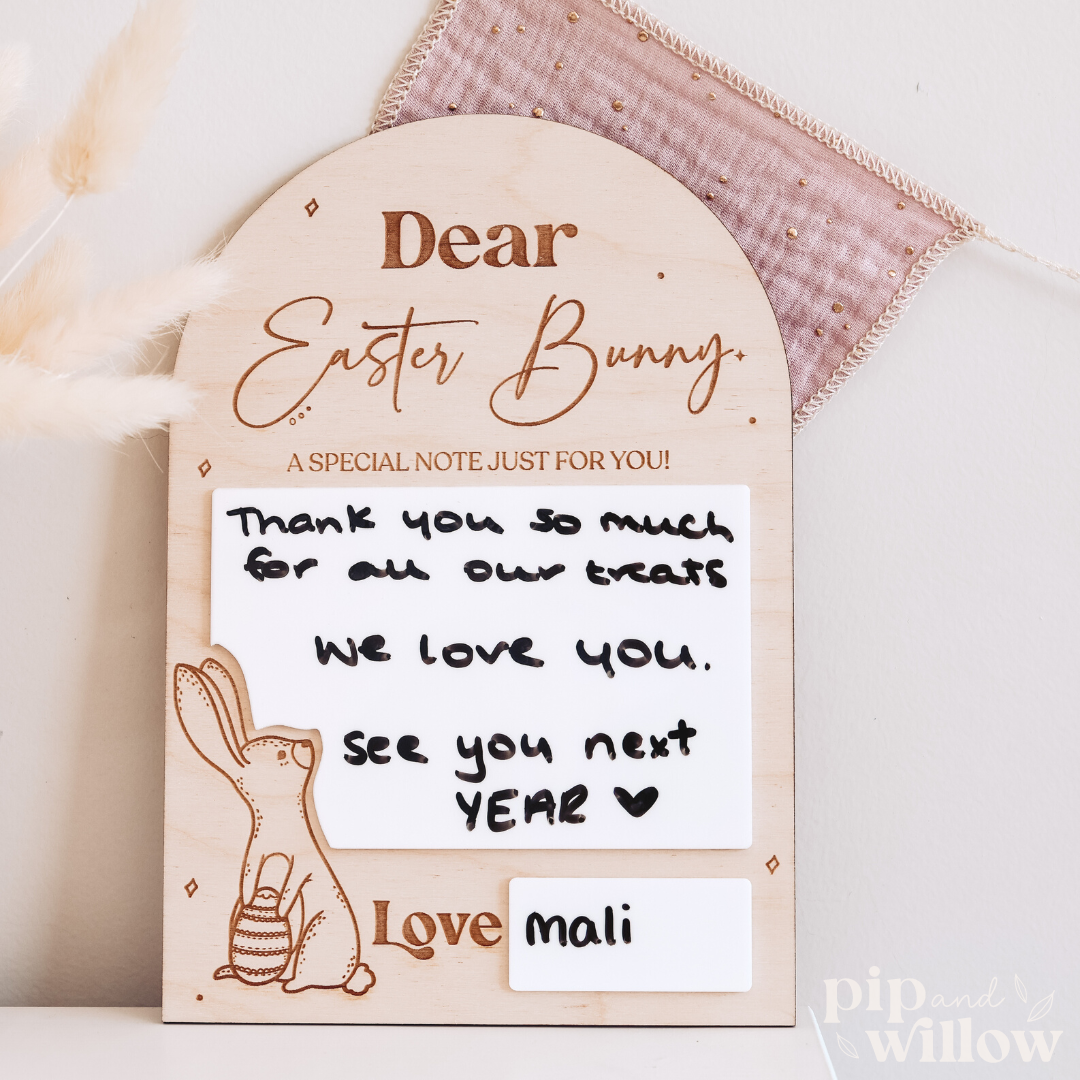 Dear
Easter Bunny
A SPECIAL NOTE JUST FOR YOU!
Thank you so much
for all our treats
We love you.
see you next
YEAR ♥
Love mali
pip and
willow